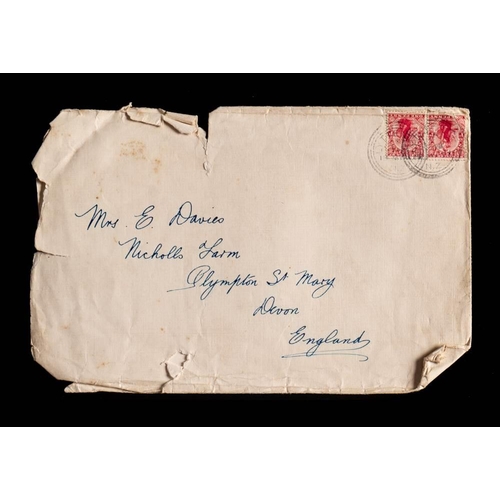 Mrs E. Davies
Nicholls Farm
Plympton St Mary
Devon
England